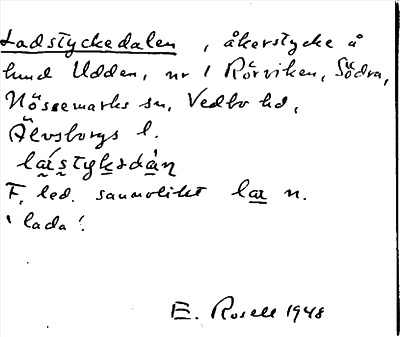 Ladstyckedalen, åkerstycke å
hmd Udden, nr 1 Rörviken, Södra,
Nössemarks sn, Vedbo hd,
Älvsborgs l.
F. led. sannolikt lar n.
'lada'.
E. Rosell 1948